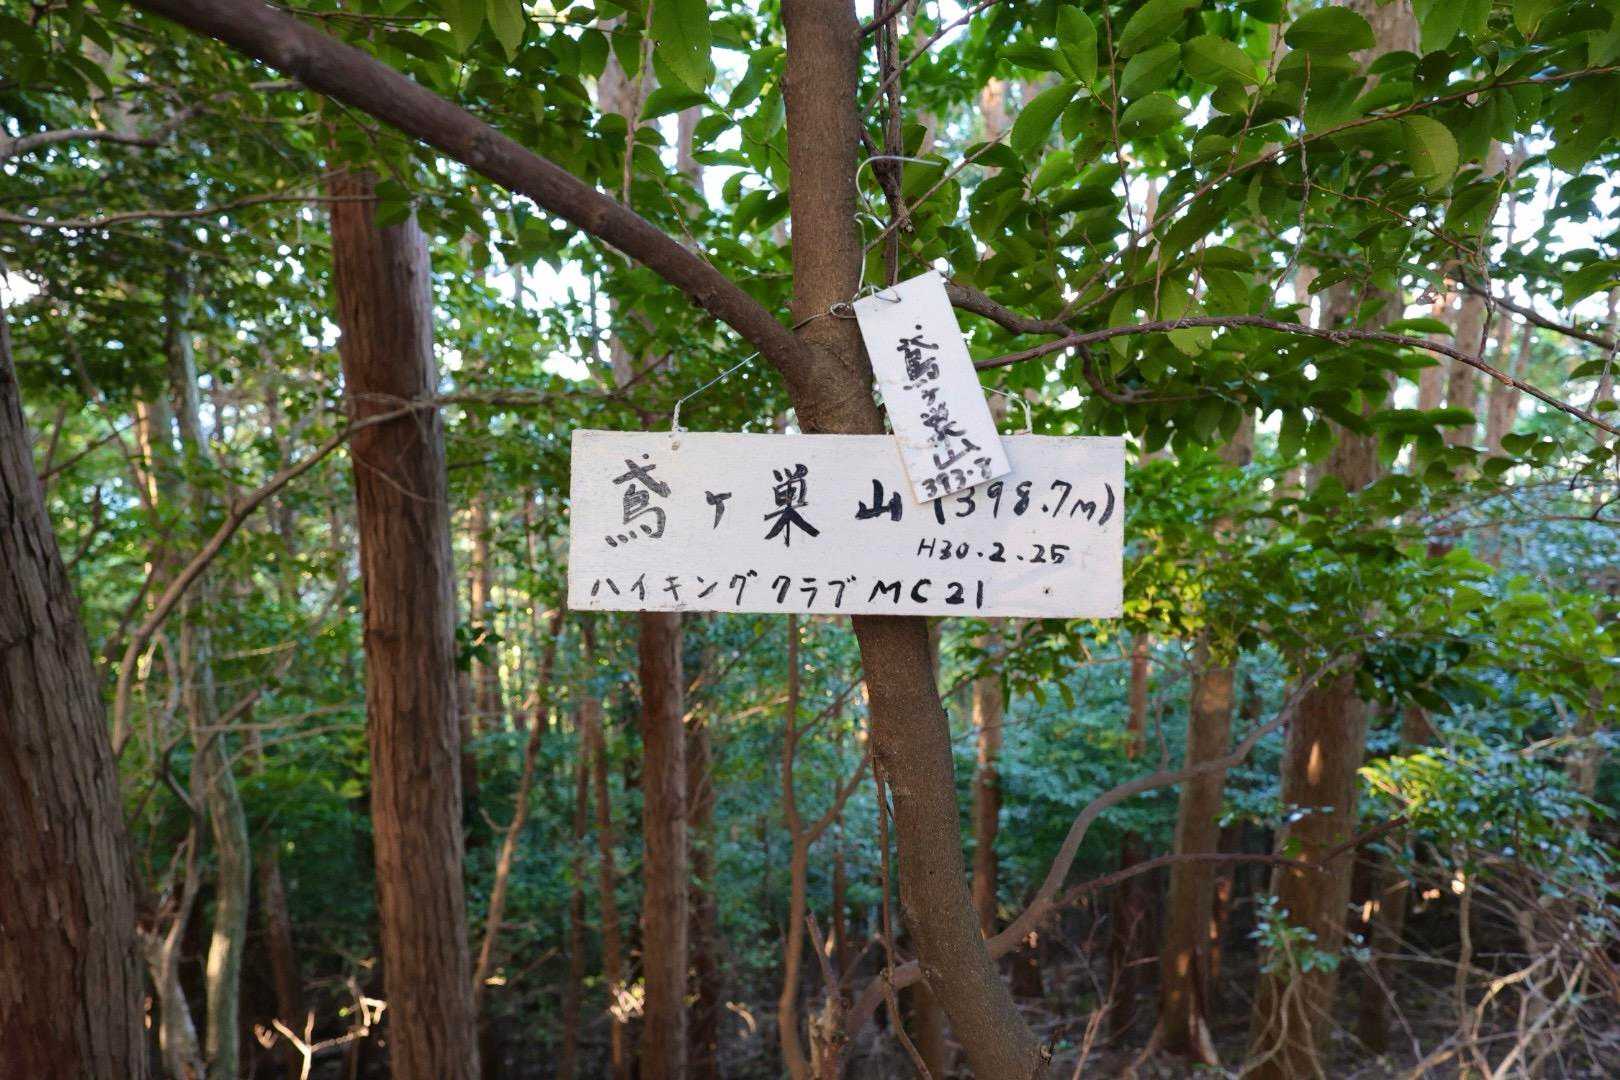 鳶ヶ巣山
393.7
鳶ヶ巣山(398.7m)
H30.2.25
ハイキングクラブMC21